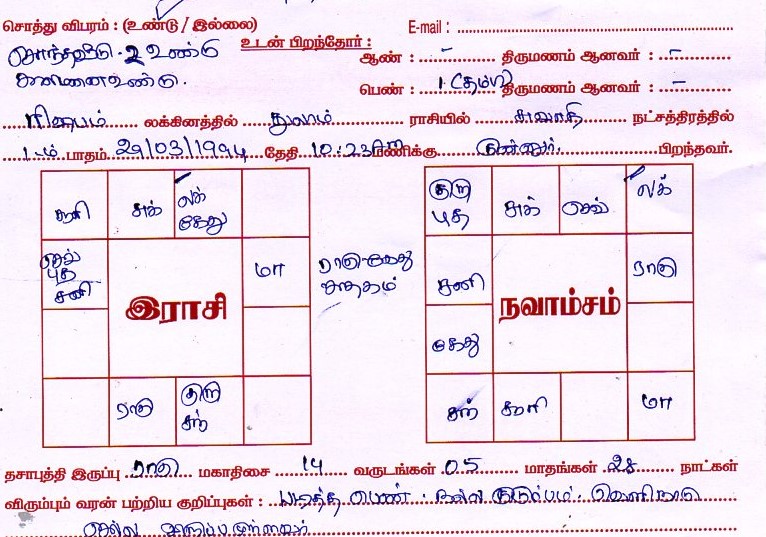 சொத்து விபரம் : (உண்டு / இல்லை) E-mail :
சொந்தவீடு - 2 உண்டு உடன் பிறந்தோர் : ஆண் : - திருமணம் ஆனவர் : -
உண்டு. பெண் : 1 திருமணம் ஆனவர் : -
ரிஷபம் லக்கினத்தில் துலாம் ராசியில் சுவாதி நட்சத்திரத்தில்
1-ம் பாதம் 29/03/1994 தேதி 10:23 மணிக்கு குன்னூர் பிறந்தவர்.
சூரி சுக் லக் கேது
குரு புத சுக் செவ் லக்
செவ் புத சனி மா
ராகு-கேது ஜாதகம்
சனி ராகு
இராசி
நவாம்சம்
கேது
ராகு குரு சந்
சந் சூரி மா
தசாபுத்தி இருப்பு ராகு மகாதிசை 14 வருடங்கள் 05 மாதங்கள் 28 நாட்கள்
விரும்பும் வரன் பற்றிய குறிப்புகள் : படித்த பெண். நல்ல குடும்பம்.